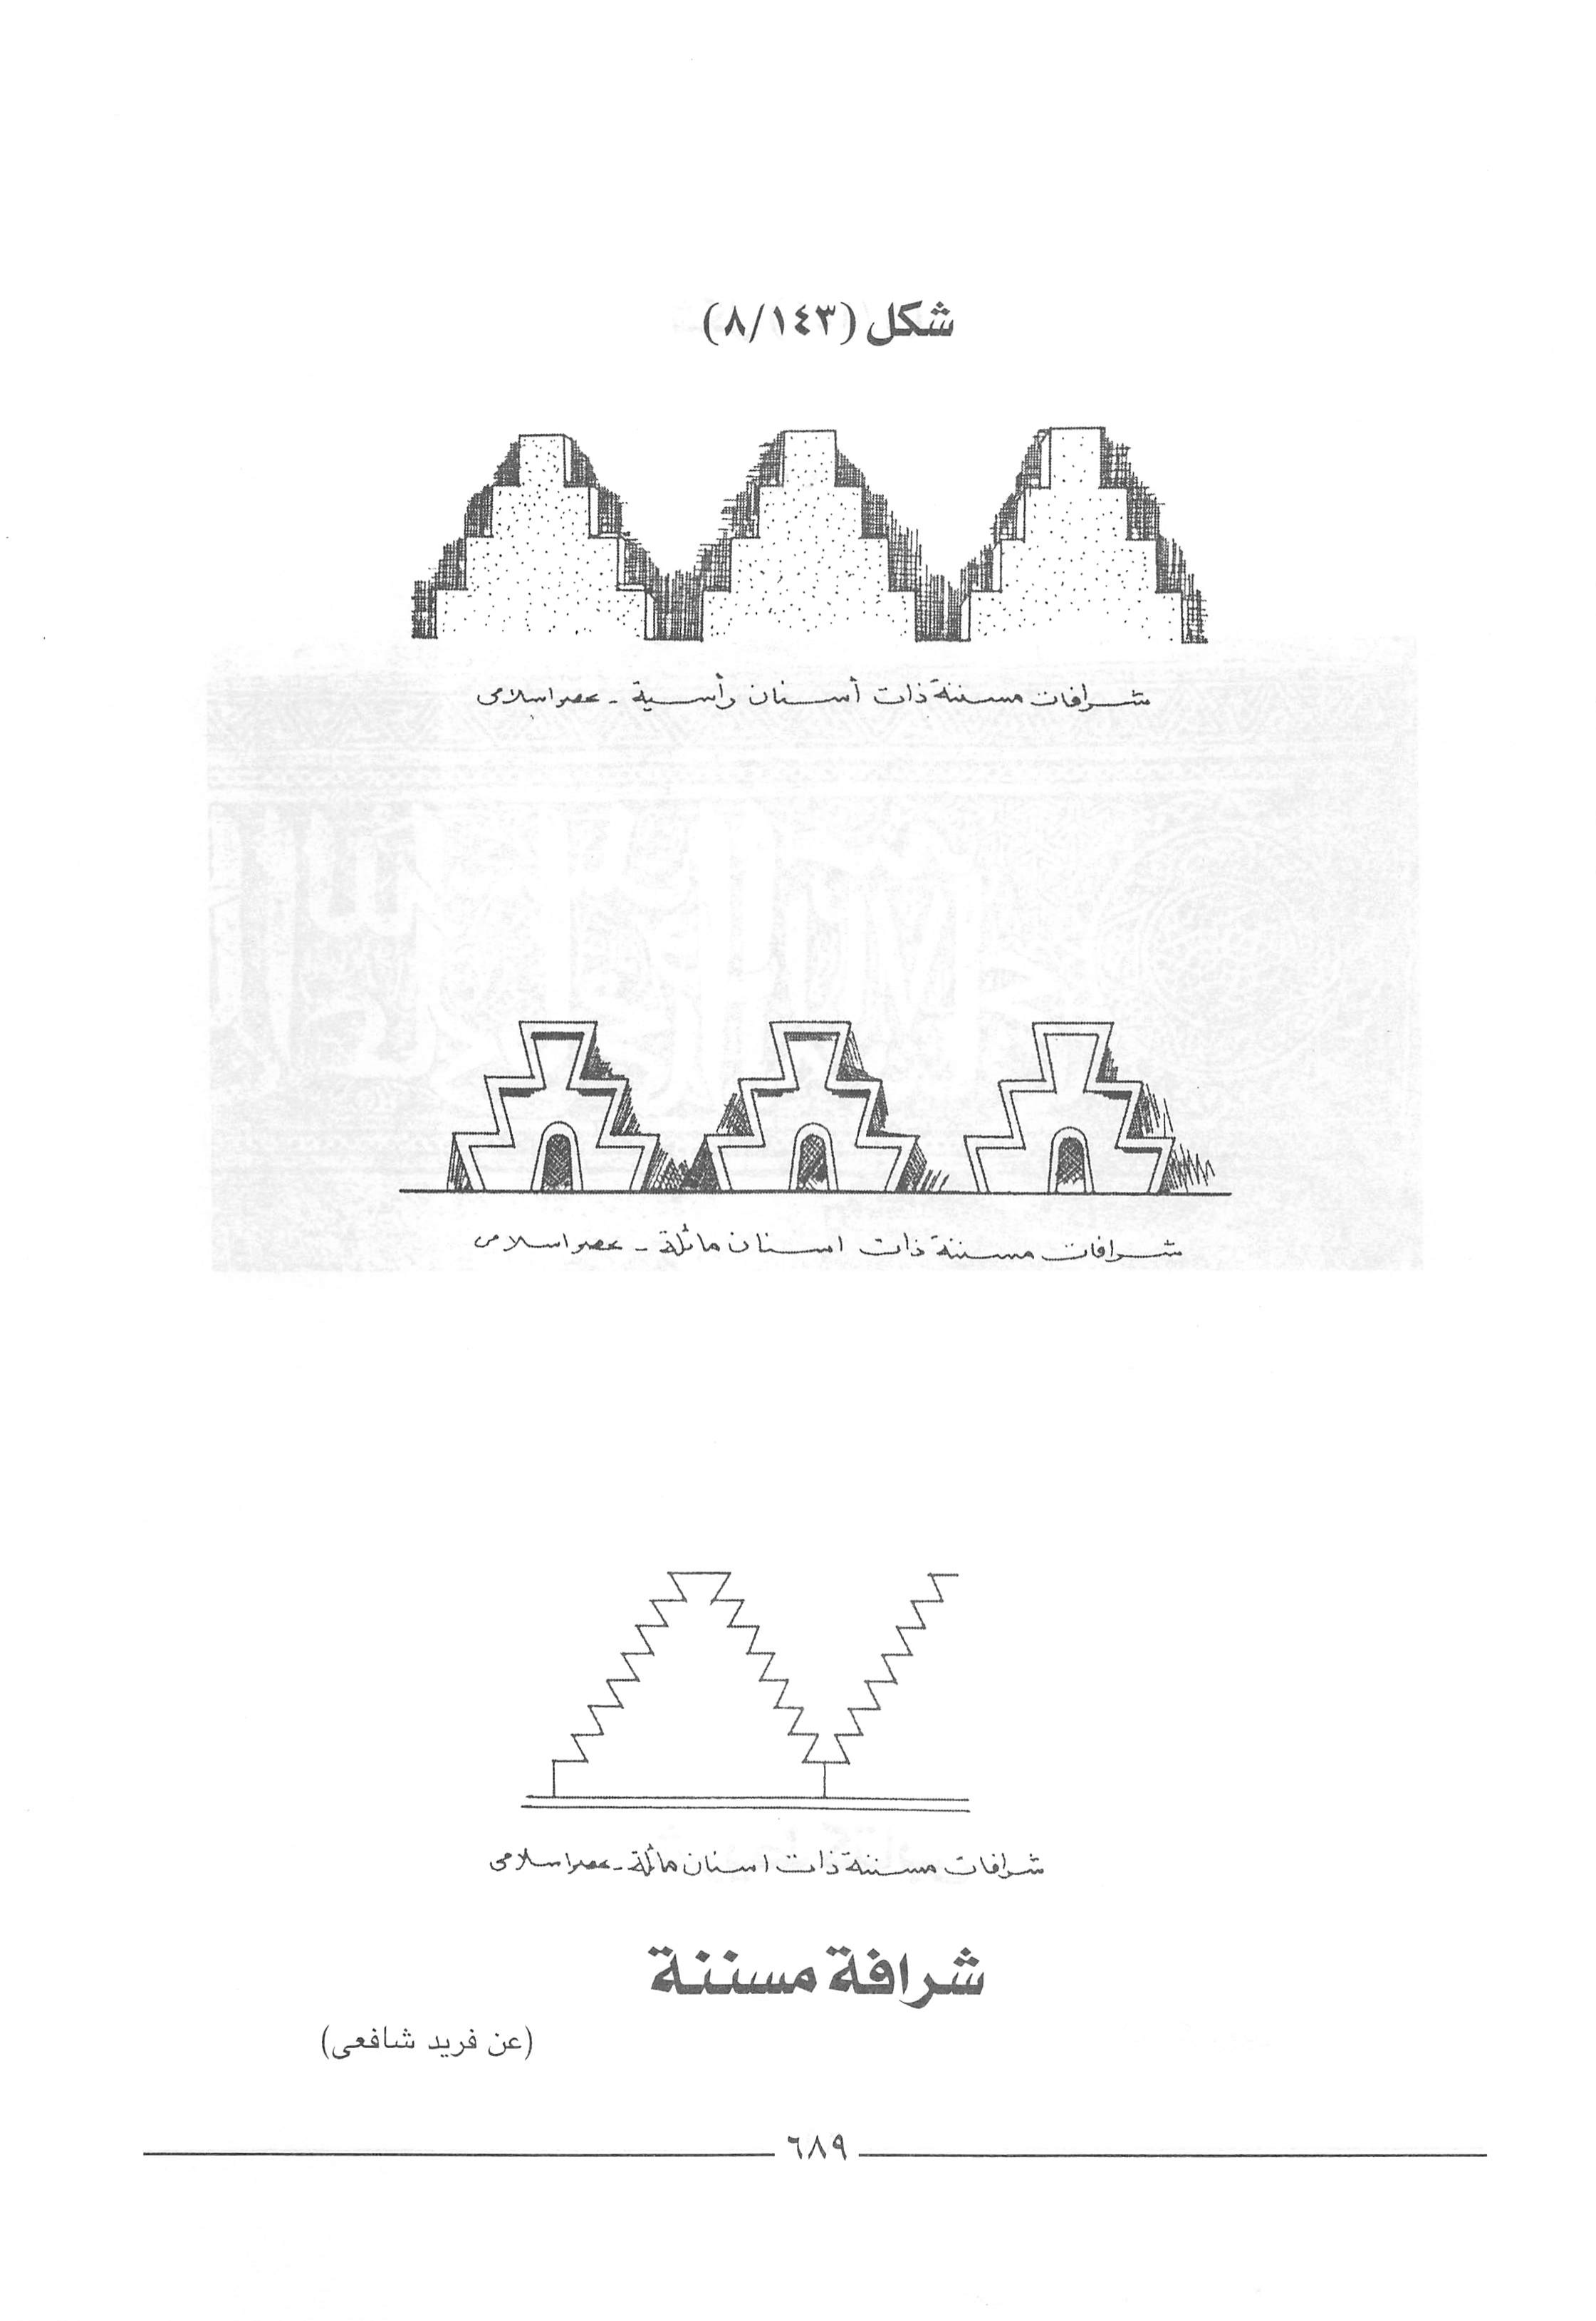 شكل (٨/١٤٣)
شرافات مسننة ذات أسنان رأسية - عصر اسلامى
شرافات مسننة ذات اسنان مائلة - عصر اسلامى
شرافات مسننة ذات اسنان مائلة - عصر اسلامى
شرافة مسننة
(عن فريد شافعى)
٦٨٩